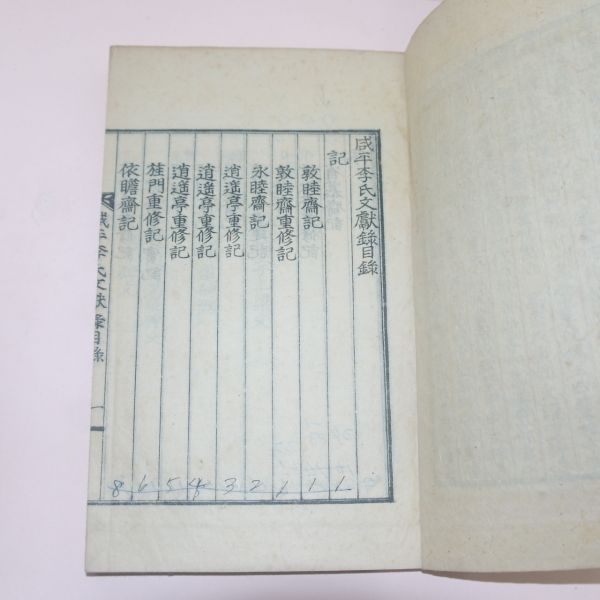 咸平李氏文獻錄目錄
記
敦睦齋記
敦睦齋重修記
永睦齋記
逍遙亭重修記
逍遙亭重修記
逍遙亭重修記
旌門重修記
依瞻齋記
咸平李氏文献彔目彔
一
1 1 1 2 3 4 5 6 8